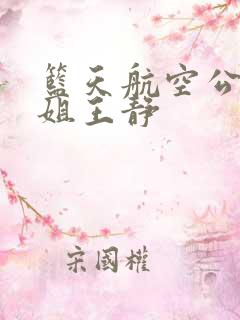 籃天航空公
姐王靜
宋國權